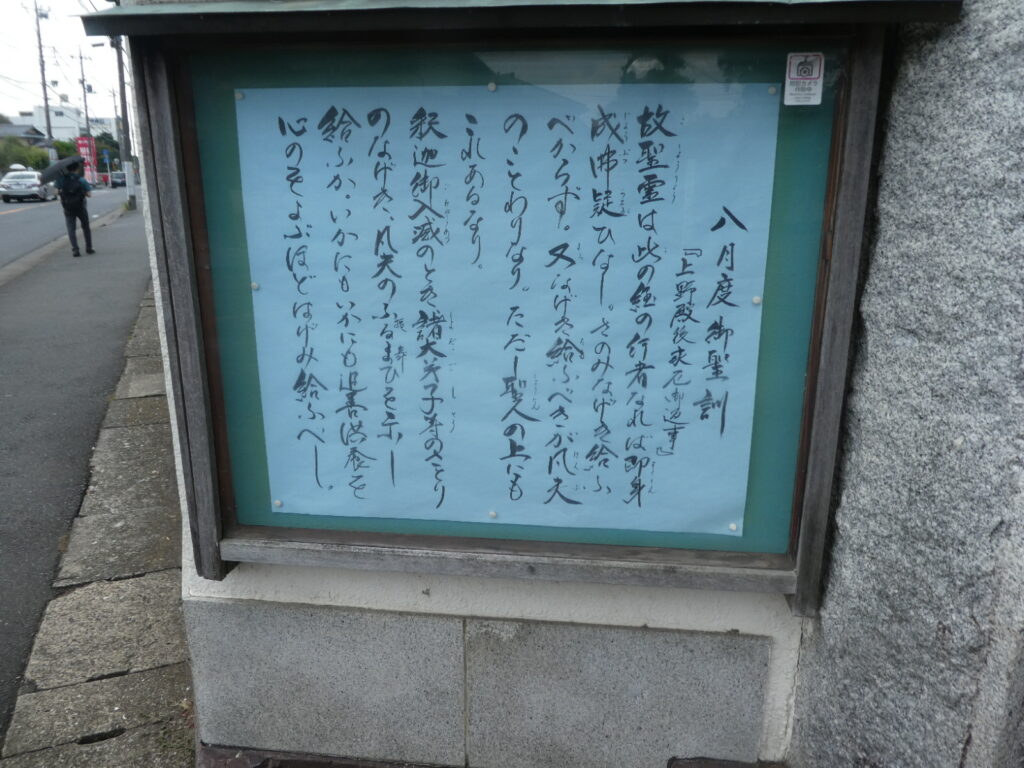 八月度 御聖訓
『上野殿後家尼御返事』
故聖霊は此の経の行者なれば即身
成佛疑ひなし。さのみなげき給ふ
べからず。又なげき給ふべきが凡夫
のことわりなり。ただし聖人の上にも
これあるなり。
釈迦御入滅のとき諸大弟子等のさとり
のなげき、凡夫のふるまひを示し
給ふか。いかにもいかにも追善供養を
心のをよぶほどはげみ給ふべし。